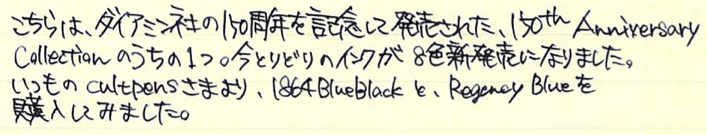 こちらは、ダイアミン社の150周年を記念して発売された、150th Anniversary
Collectionのうちの1つ。今とりどりのインクが8色新発売になりました。
いつものcultpensさまより、1864BlueBlackと、Regency Blueを
購入してみました。